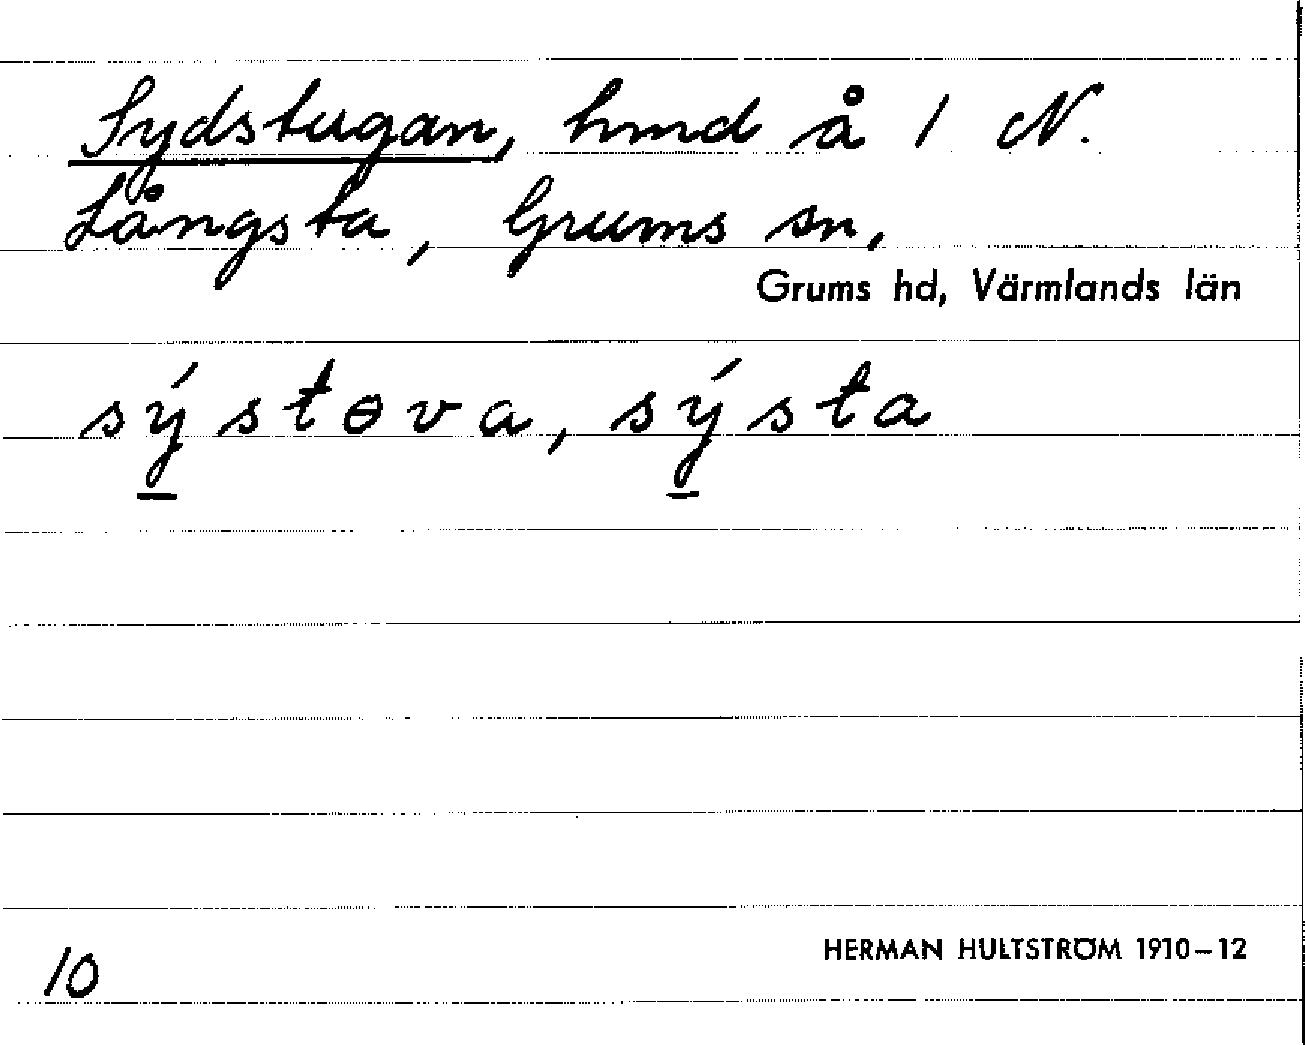 Sydstugan, hmd å 1 N.
Långsta, Grums sn,
Grums hd, Värmlands län
sýstɵva, sýsta
10
HERMAN HULTSTRÖM 1910–12